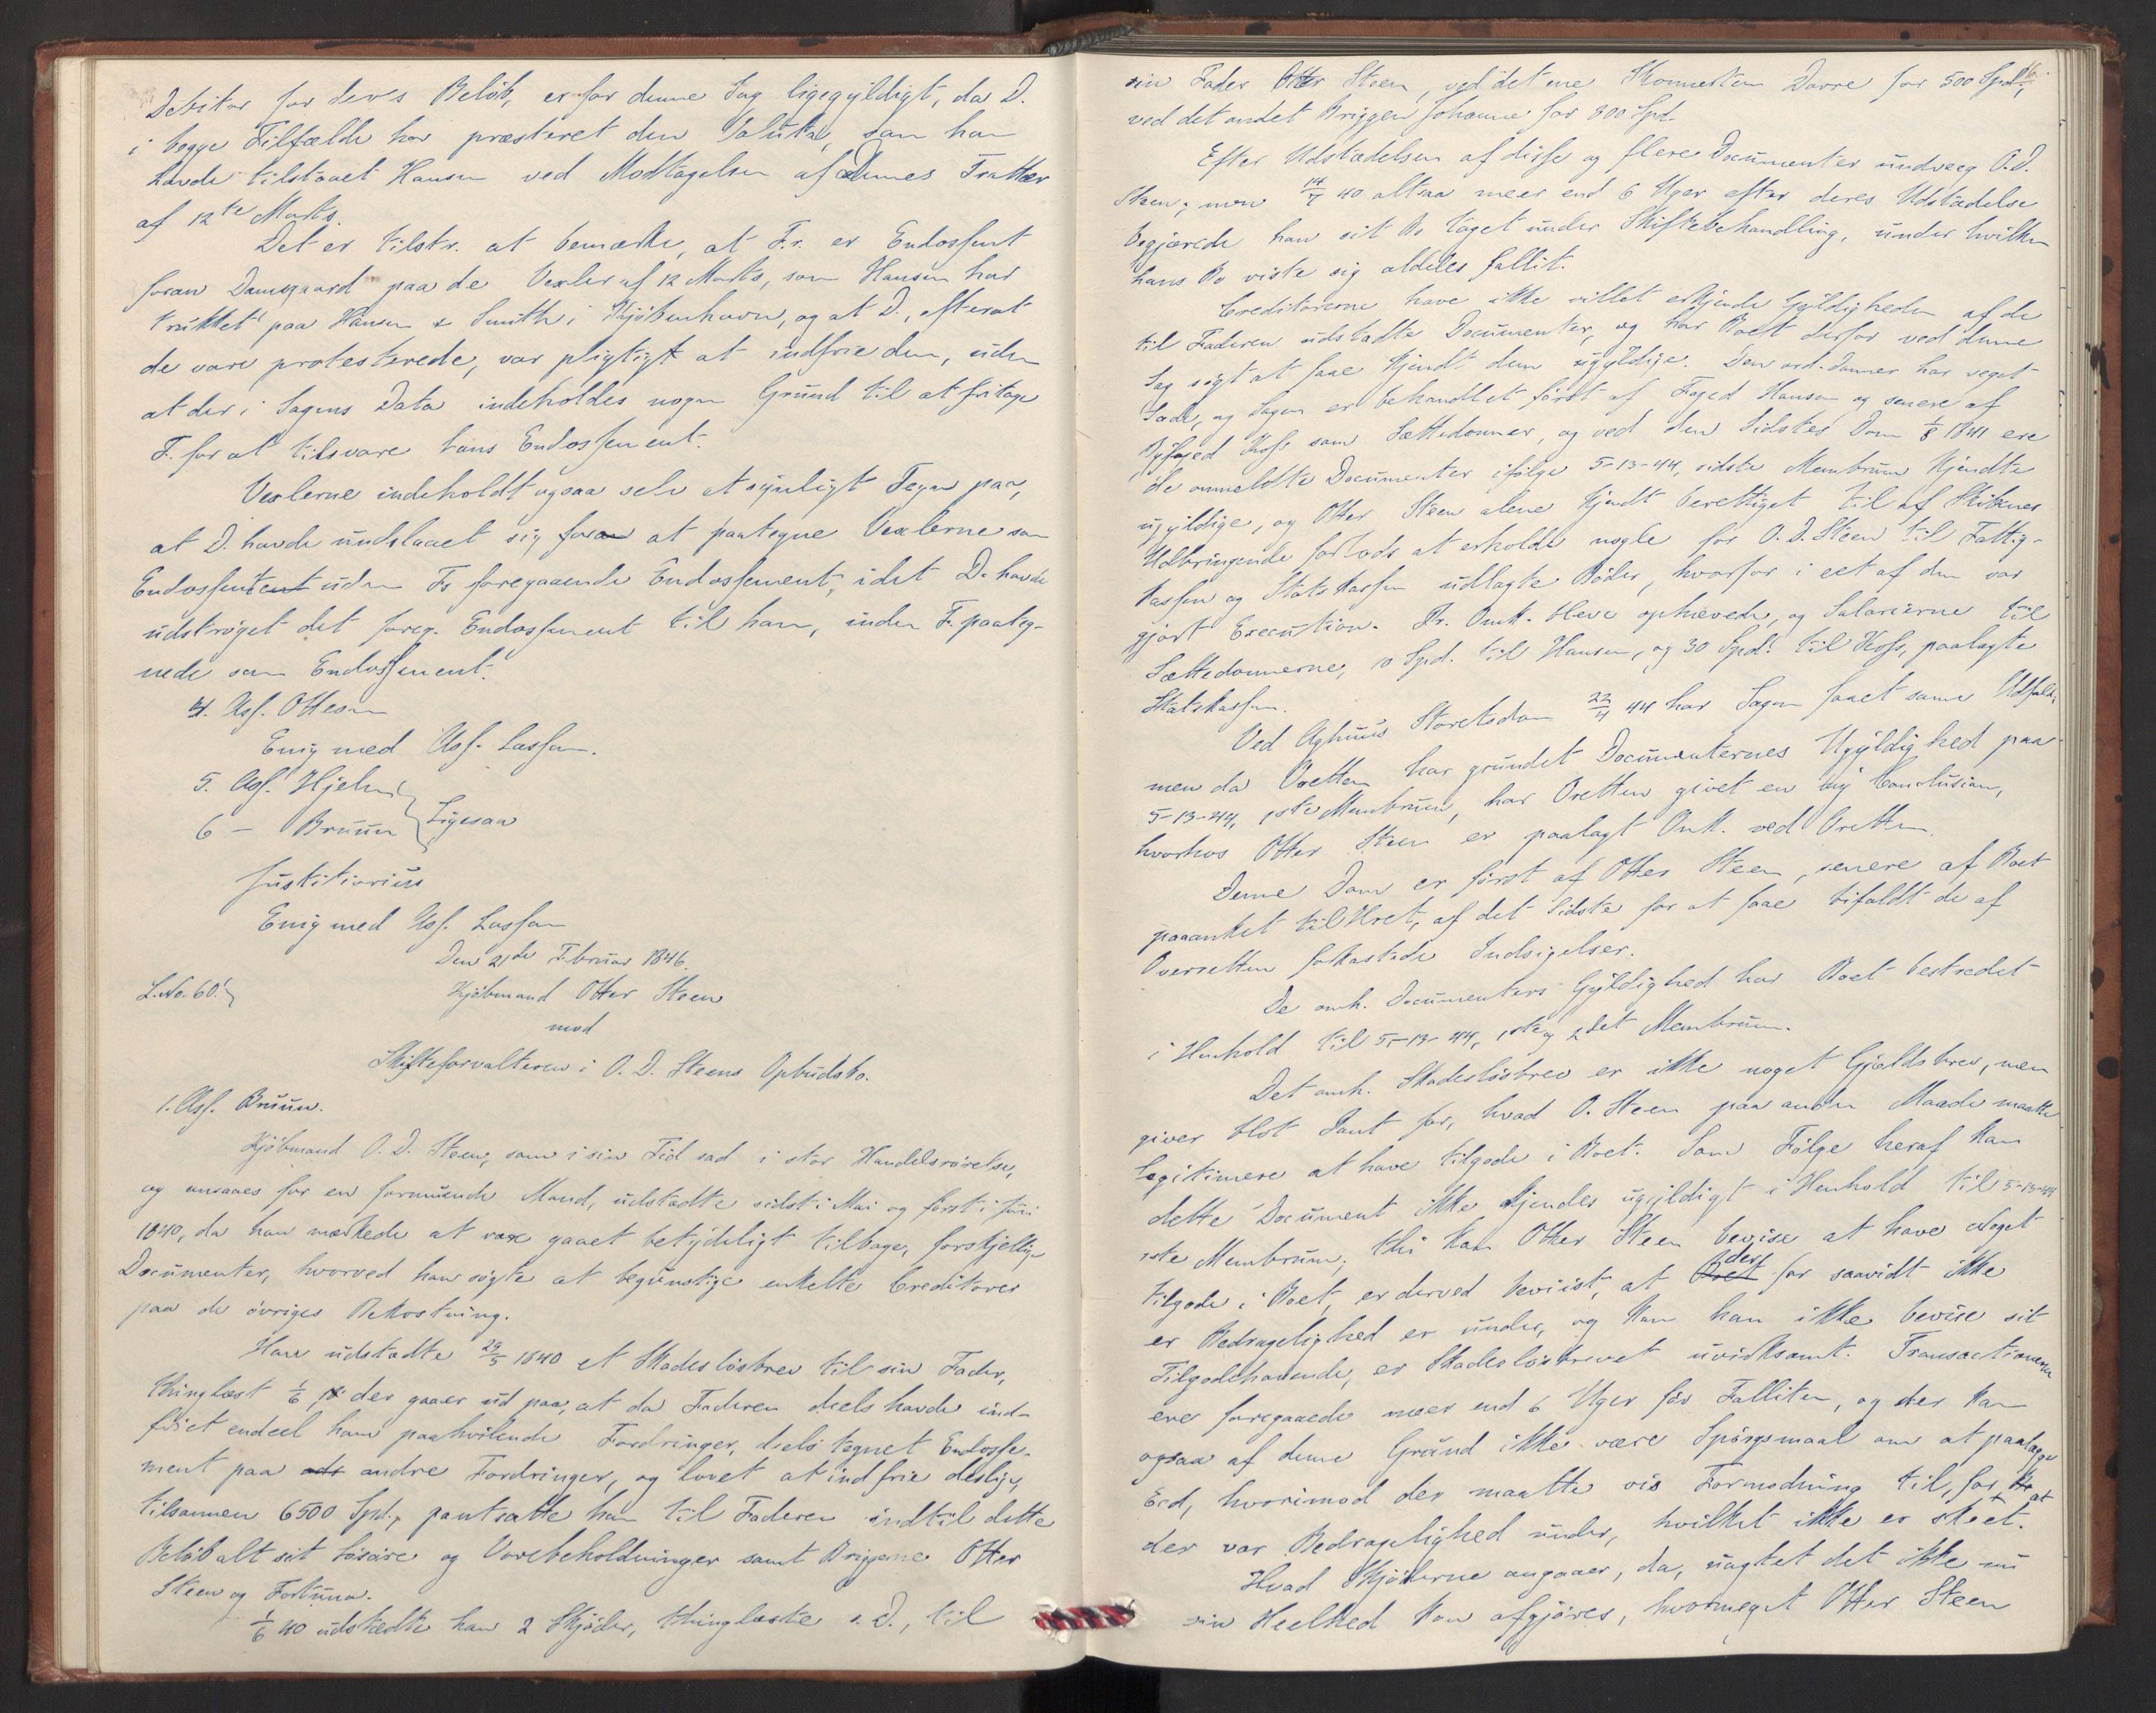 Debitor for dens Beløb, er for denne Sag ligegyldigt, da D.
i begge Tilfælde har præsteret den Valuta, som han
havde tilstaaet Hansen ved Modtagelsen af dennes Tratter
af 12te Marts.
Det er tilstr. at bemærke, at F. er Endossent
foran Damgaard paa de Vexler af 12 Marts, som Hansen har
trukket paa Hansen & Smith i Kjöbenhavn, og at D., efterat
de vare protesterede, var pligtigt at indfrie dem, uden
at der i Sagens Data indeholdes nogen Grund til at fritage
F. for at tilsvare hans Endossement.
Vexlerne indeholdt ogsaa selv et synligt Tegn paa,
at D. havde undslaaet sig for at paategne Vexlerne som
Endossent uden Fs foregaaende Endossement, idet D. havde
udstrøget det foreg. Endossement til ham, inden F. paateg-
nede som Endossement.
4. Ass. Ottesen
Enig med Ass. Lasson.
5. Ass. Hjelm
6 — Bruun } Ligesaa
Justitiarius
Enig med Ass. Lasson
Den 21de Februar 1846.
L. No. 60.
Kjöbmand Otter Steen
mod
Skifteforvalteren i O. D. Steens Opbudsbo.
1. Ass. Bruun.
Kjöbmand O. D. Steen, som i sin Tid sad i stor Handelsrørelse,
og ansaaes for en formuende Mand, udstædte sidst i Mai og først i Juni
1840, da han mærkede at være gaaet betydeligt tilbage, forskjellige
Documenter, hvorved han søgte at begunstige enkelte Creditorer
paa de øvriges Bekostning.
Han udstædte 29/5 1840 et Skadesløsbrev til sin Fader,
thinglæst 1/6, der gaaer ud paa, at da Faderen deels havde ind-
friet endeel ham paahvilende Fordringer, deels tegnet Endosse-
ment paa andre Fordringer, og lovet at indfrie deslige,
tilsammen 6500 Spd., pantsatte han til Faderen indtil dette
Beløb alt sit Løsøre og Varebeholdninger samt Briggerne Otter
Steen og Fortuna.
1/6 40 udstædte han 2 Skjøder, thinglæste s. D., til
sin Fader Otter Steen, ved det ene Skonnerten Dovre for 500 Spd.,
ved det andet Briggen Johanne for 800 Spd.
Efter Udstædelsen af disse og flere Documenter undveeg O. D.
Steen; men 14/7 40 altsaa meer end 6 Uger efter deres Udstædelse
begjærede han sit Bo taget under Skiftebehandling, under hvilken
hans Bo viste sig aldeles fallit.
Creditorerne have ikke villet erkjende Gyldigheden af de
til Faderen udstædte Documenter, og har Boet derfor ved denne
Sag søgt at faae kjendt dem ugyldige. Den ord. Dommer har veget
Sæde, og Sagen er behandlet først af Foged Hansen og senere af
Byfoged Koss som Sættedommer, og ved den Sidstes Dom 1/8 1841 ere
de anmeldte Documenter ifølge 5-13-44, sidste Membrum kjendte
ugyldige, og Otter Steen alene kjendt berettiget til af Skibenes
Udbringende forlods at erholde nogle for O. D. Steen til Fattig-
kassen og Statskassen udlagte Bøder, hvorfor i eet af dem var
gjort Execution. Pr. Omk. bleve ophævede, og Salarierne til
Sættedommerne, 10 Spd. til Hansen, og 30 Spd. til Koss, paalagte
Statskassen.
Ved Aghuus Storetsdom 22/4 44 har Sagen faaet samme Udfald,
men da Oretten har grundet Documenternes Ugyldighed paa
5-13-44, 1ste Membrum, har Oretten givet en ny Conclusion,
hvorhos Otter Steen er paalagt Omk. ved Oretten.
Denne Dom er først af Otter Steen, senere af Boet
paaanket til Hret, af det Sidste for at faae bifaldt de af
Overretten forkastede Indsigelser.
De omh. Documenters Gyldighed har Boet bestredet
i Henhold til 5-13-44, 1ste og 2det Membrum.
Det omh. Skadesløsbrev er ikke noget Gjældsbrev, men
giver blot Pant for, hvad O. Steen paa anden Maade maatte
legitimere at have tilgode i Boet. Som Følge heraf kan
dette Document ikke kjendes ugyldigt i Henhold til 5-13-44
1ste Membrum; thi kan Otter Steen bevise at have Noget
tilgode i Boet, er derved beviist, at der for saavidt ikke
er Bedragelighed er under, og kan han ikke bevise sit
Tilgodehavende, er Skadesløsbrevet uvirksomt. Transactionerne
ere foregaaede meer end 6 Uger før Falliten, og der kan
ogsaa af denne Grund ikke være Spørgsmaal om at paalægge
Eed, hvorimod der maatte vis Formodning til, for at
der var Bedragelighed under, hvilket ikke er skeet.
Hvad Skjøderne angaaer, da, uagtet det ikke nu
sin Heelhed kan afgjøres, hvormeget Otter Steen